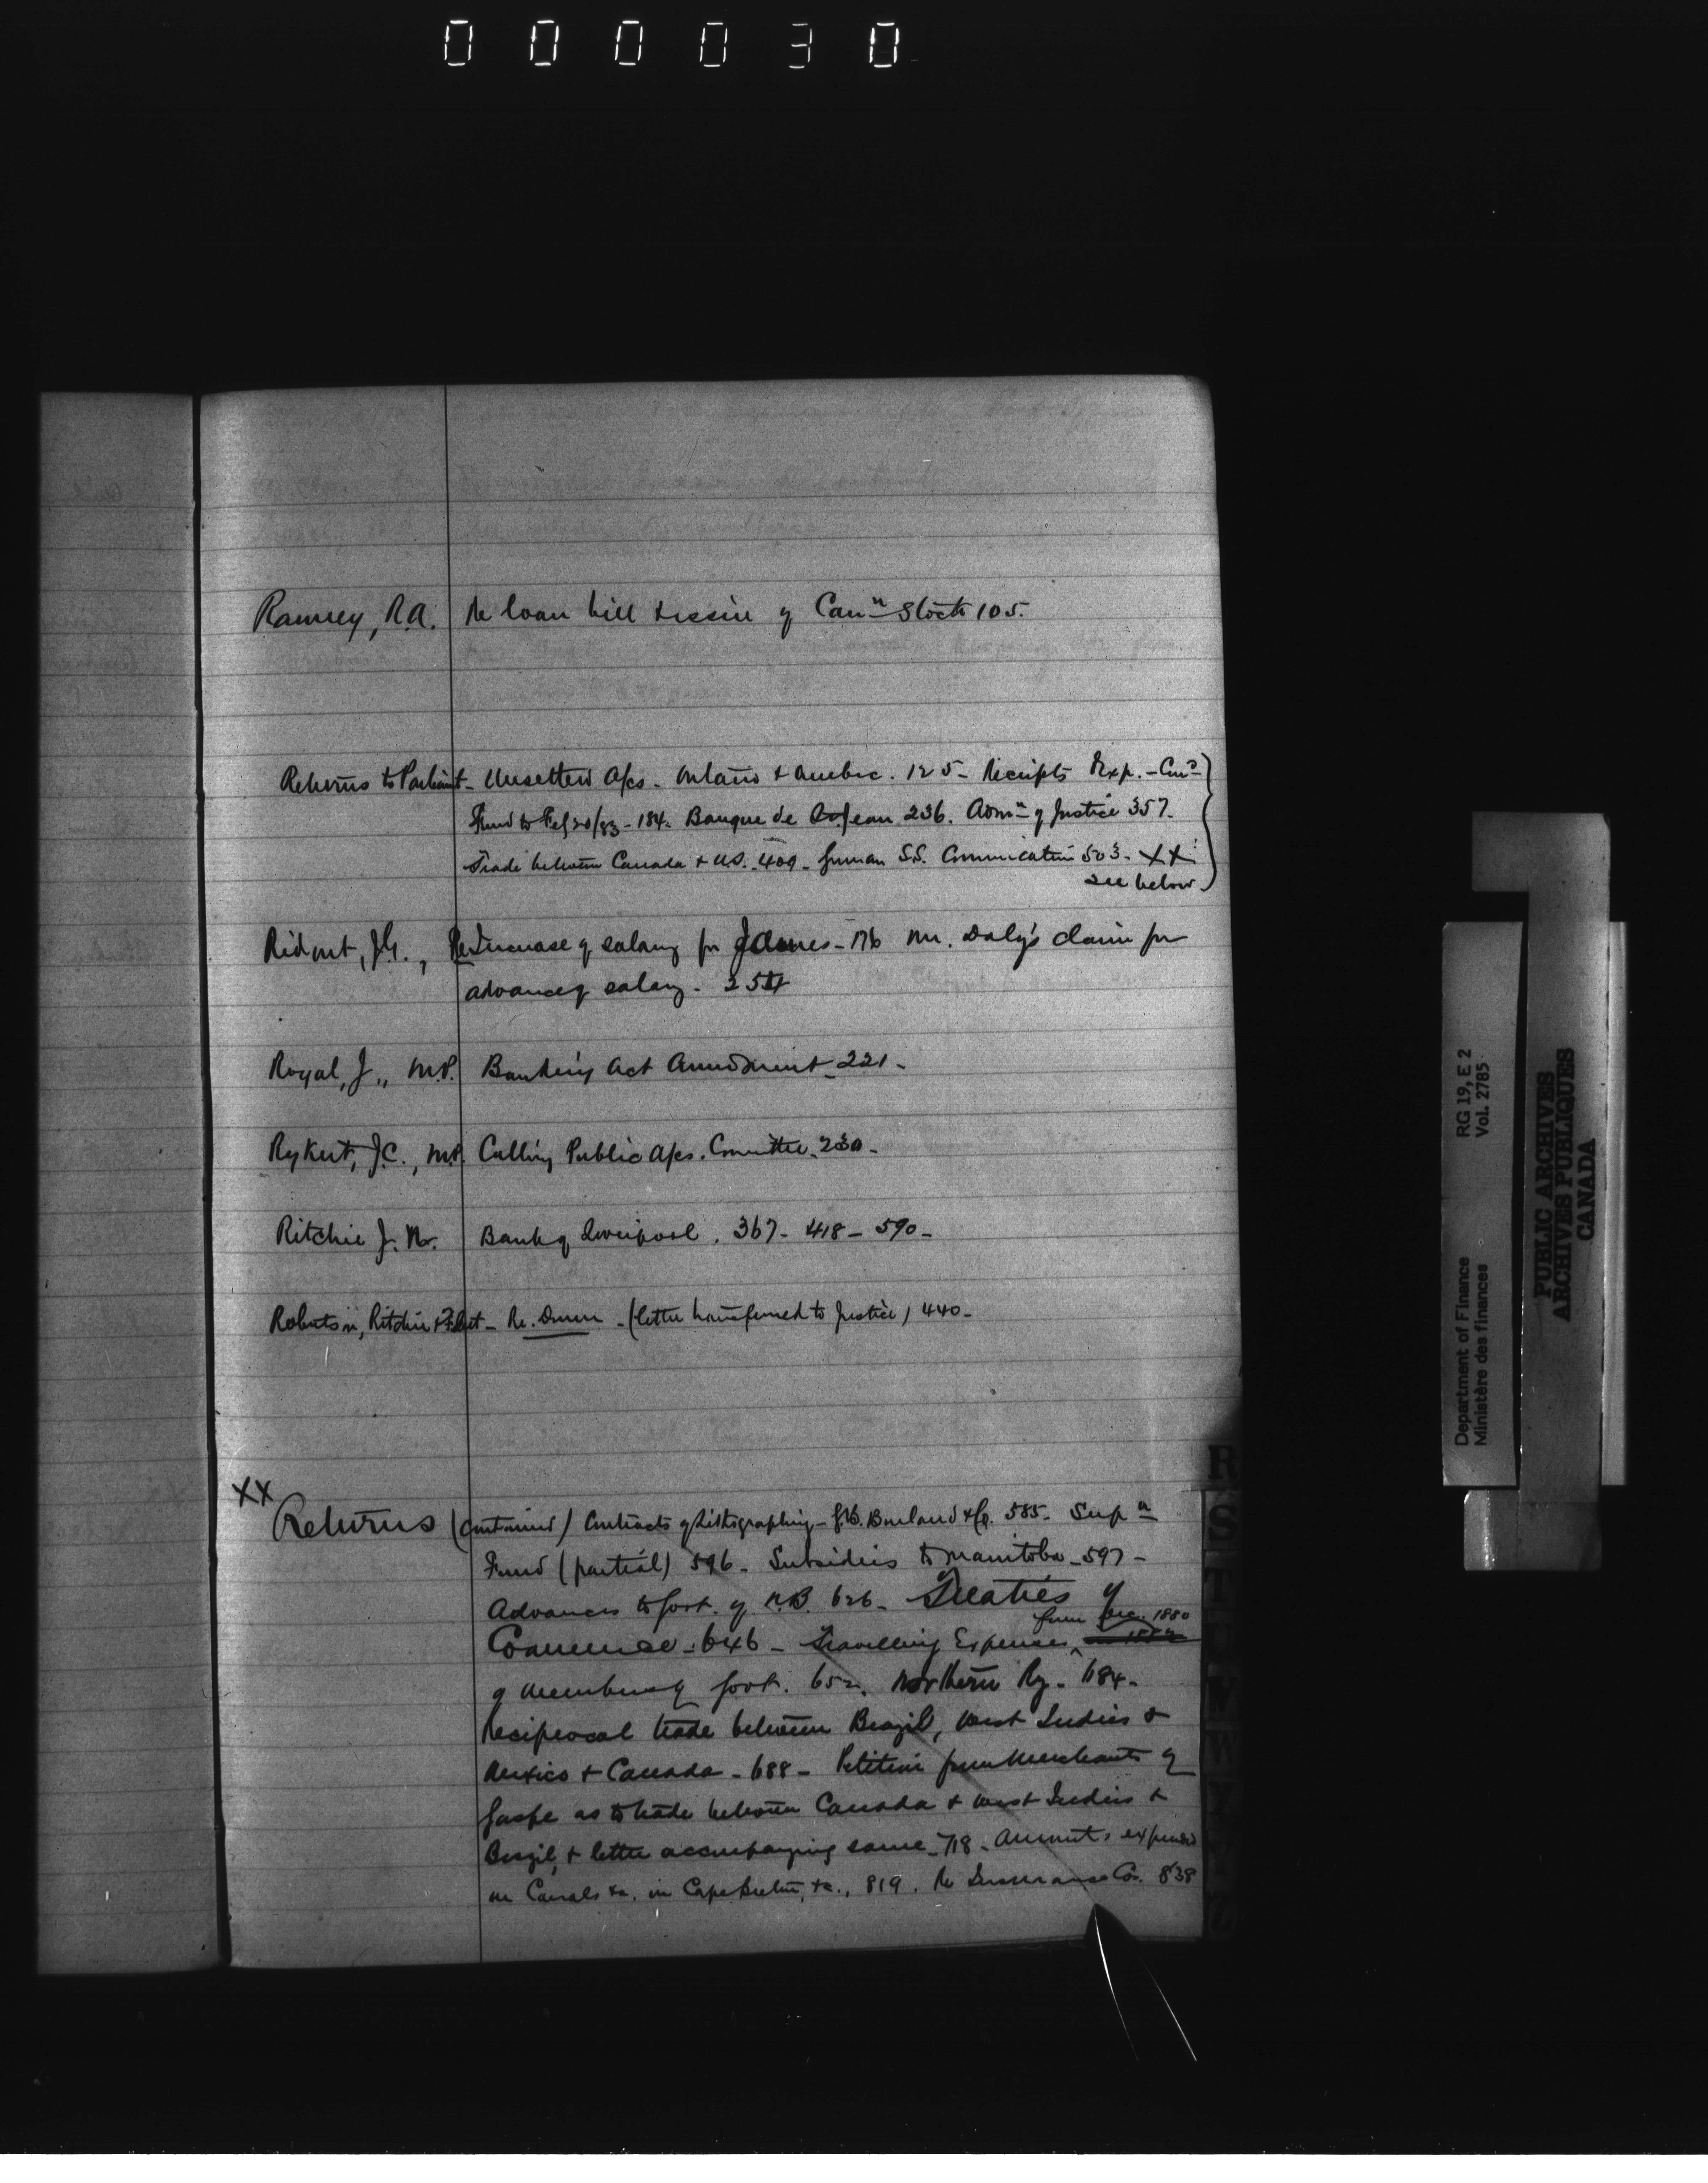 000030
Ramsey, R.A. Re loan bill & issue of Can<sup>n</sup> Stock 105.
Returns to Parliamt - Unsettled A/cs - Ontario & Quebec. 125 - Receipts & Exp. - Con<sup>d</sup>
Fund to Feb 20/83 - 184. Banque de St Jean 236. Adm<sup>n</sup> of Justice 357.
Trade between Canada & U.S. - 409 - German S.S. Communication 503 - XX
see below
Ridout, J.G., Re Increase of salary for - 176 Mr. Daly's claim for
advance of salary. 254
Royal, J., M.P. Banking Act Amendment - 221 -
Rykert, J.C., M.P. Calling Public A/cs. Committee - 230 -
Ritchie J. N. Bank of Liverpool. 367 - 418 - 590 -
Robertson, Ritchie & Fleet - Re. Dunn - (letter transferred to Justice) 440 -
XX
Returns (continued) Contracts of Lithographing - G.B. Burland & Co. 585 - Sup<sup>n</sup>
Fund (partial) 596 - Subsidies to Manitoba - 597 -
Advances to Govt. of N.B. 626 - Treaties of
from Dec. 1880
Commerce - 646 - Travelling Expenses
of members of Govt. 652. Northern Ry. - 684 -
Reciprocal trade between Brazil, West Indies &
Mexico & Canada - 688 - Petition from Merchants of
Gaspe as to trade between Canada & West Indies &
Brazil, & letter accompanying same - 718 - Amounts expended
on Canals &c. in Cape Breton, &c., 819. Re Insurance Cos. 838
R
S
T
U
V
W
Y
Z
Department of Finance RG 19, E 2
Ministère des finances Vol. 2785
PUBLIC ARCHIVES
ARCHIVES PUBLIQUES
CANADA